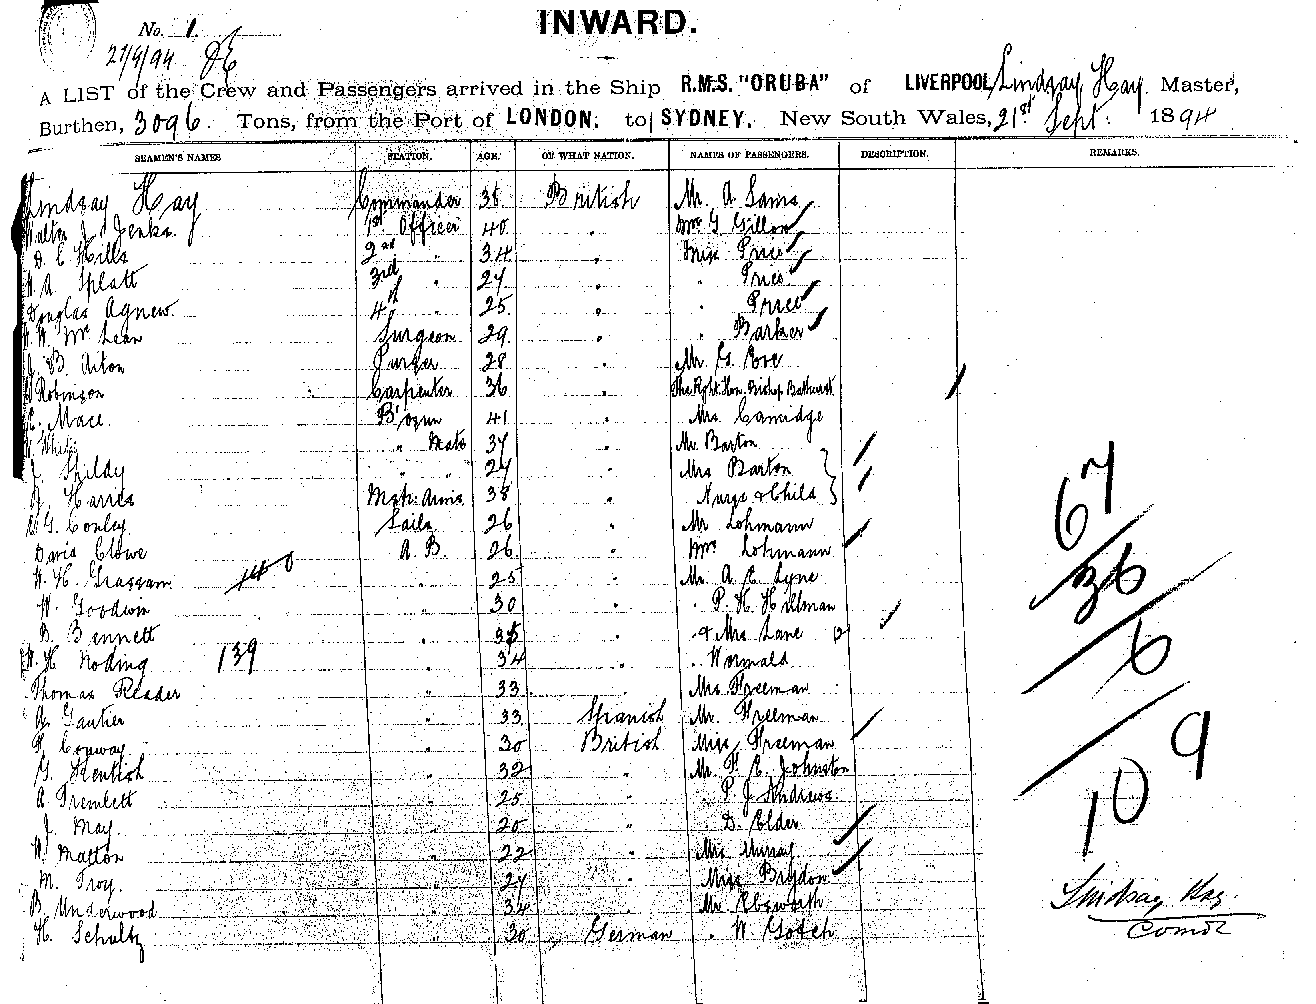 INWARD.
No. 1.
21/9/94
A LIST of the Crew and Passengers arrived in the Ship R.M.S. "ORUBA" of LIVERPOOL, Lindsay Hay Master,
Burthen, 3096. Tons, from the Port of LONDON. to SYDNEY. New South Wales, 21st Sept: 1894
SEAMEN'S NAMES STATION. AGE. OF WHAT NATION. NAMES OF PASSENGERS. DESCRIPTION. REMARKS.
Lindsay Hay Commander 38 British Mr. A Sams
Walter J. Jenks. 1st Officer 40 " Mrs G Gillon
D. E. Hills 2nd " 34 " Miss Price
A. Splatt 3rd " 27 " " Price
Douglas Agnew. 4th " 25. " " Price
Mc Lean Surgeon 29 " " Barker
B. Aiton Purser 28 " Mr G. Cove
Robinson Carpenter 36 " The Right Hon. Bishop Bathurst
E. Mace B'osun 41 " Mrs. Camidge
" Mate 37 " Mr Barton
J. " " 27 " Mrs Barton
J. Harris Mstr: Arms. 38 " Nurse & Child
G. Conley Sails 26 " Mr Lohmann
David Clowe A. B. 26 " Mrs Lohmann
W. H. Grassam 140 " 25 " Mr. A E Lyne
W. Goodwin " 30 " " P. H. Hillman
B. Bennett " 35 " " & Mrs Lane (2)
W. H. Noding 139 " 34 " " Wormald
Thomas Reader " 33 " Mrs Freeman
A. Gautier " 33 Spanish Mr. Freeman
Conway " 30 British Miss Freeman
G. Kentish " 32 " Mr. F. E. Johnston
A. Tremlett " 25 " " P. J. Andrews
J. May. " 20 " " D. Elder
W. Matton " 22 " Mrs Murray
M. Troy. " 27 " Miss Brydon
B. Underwood " 34 " Mr Ebsworth
H. Schultz " 30 German " W Gotch
67
36
6
109
Lindsay Hay.
Comdr